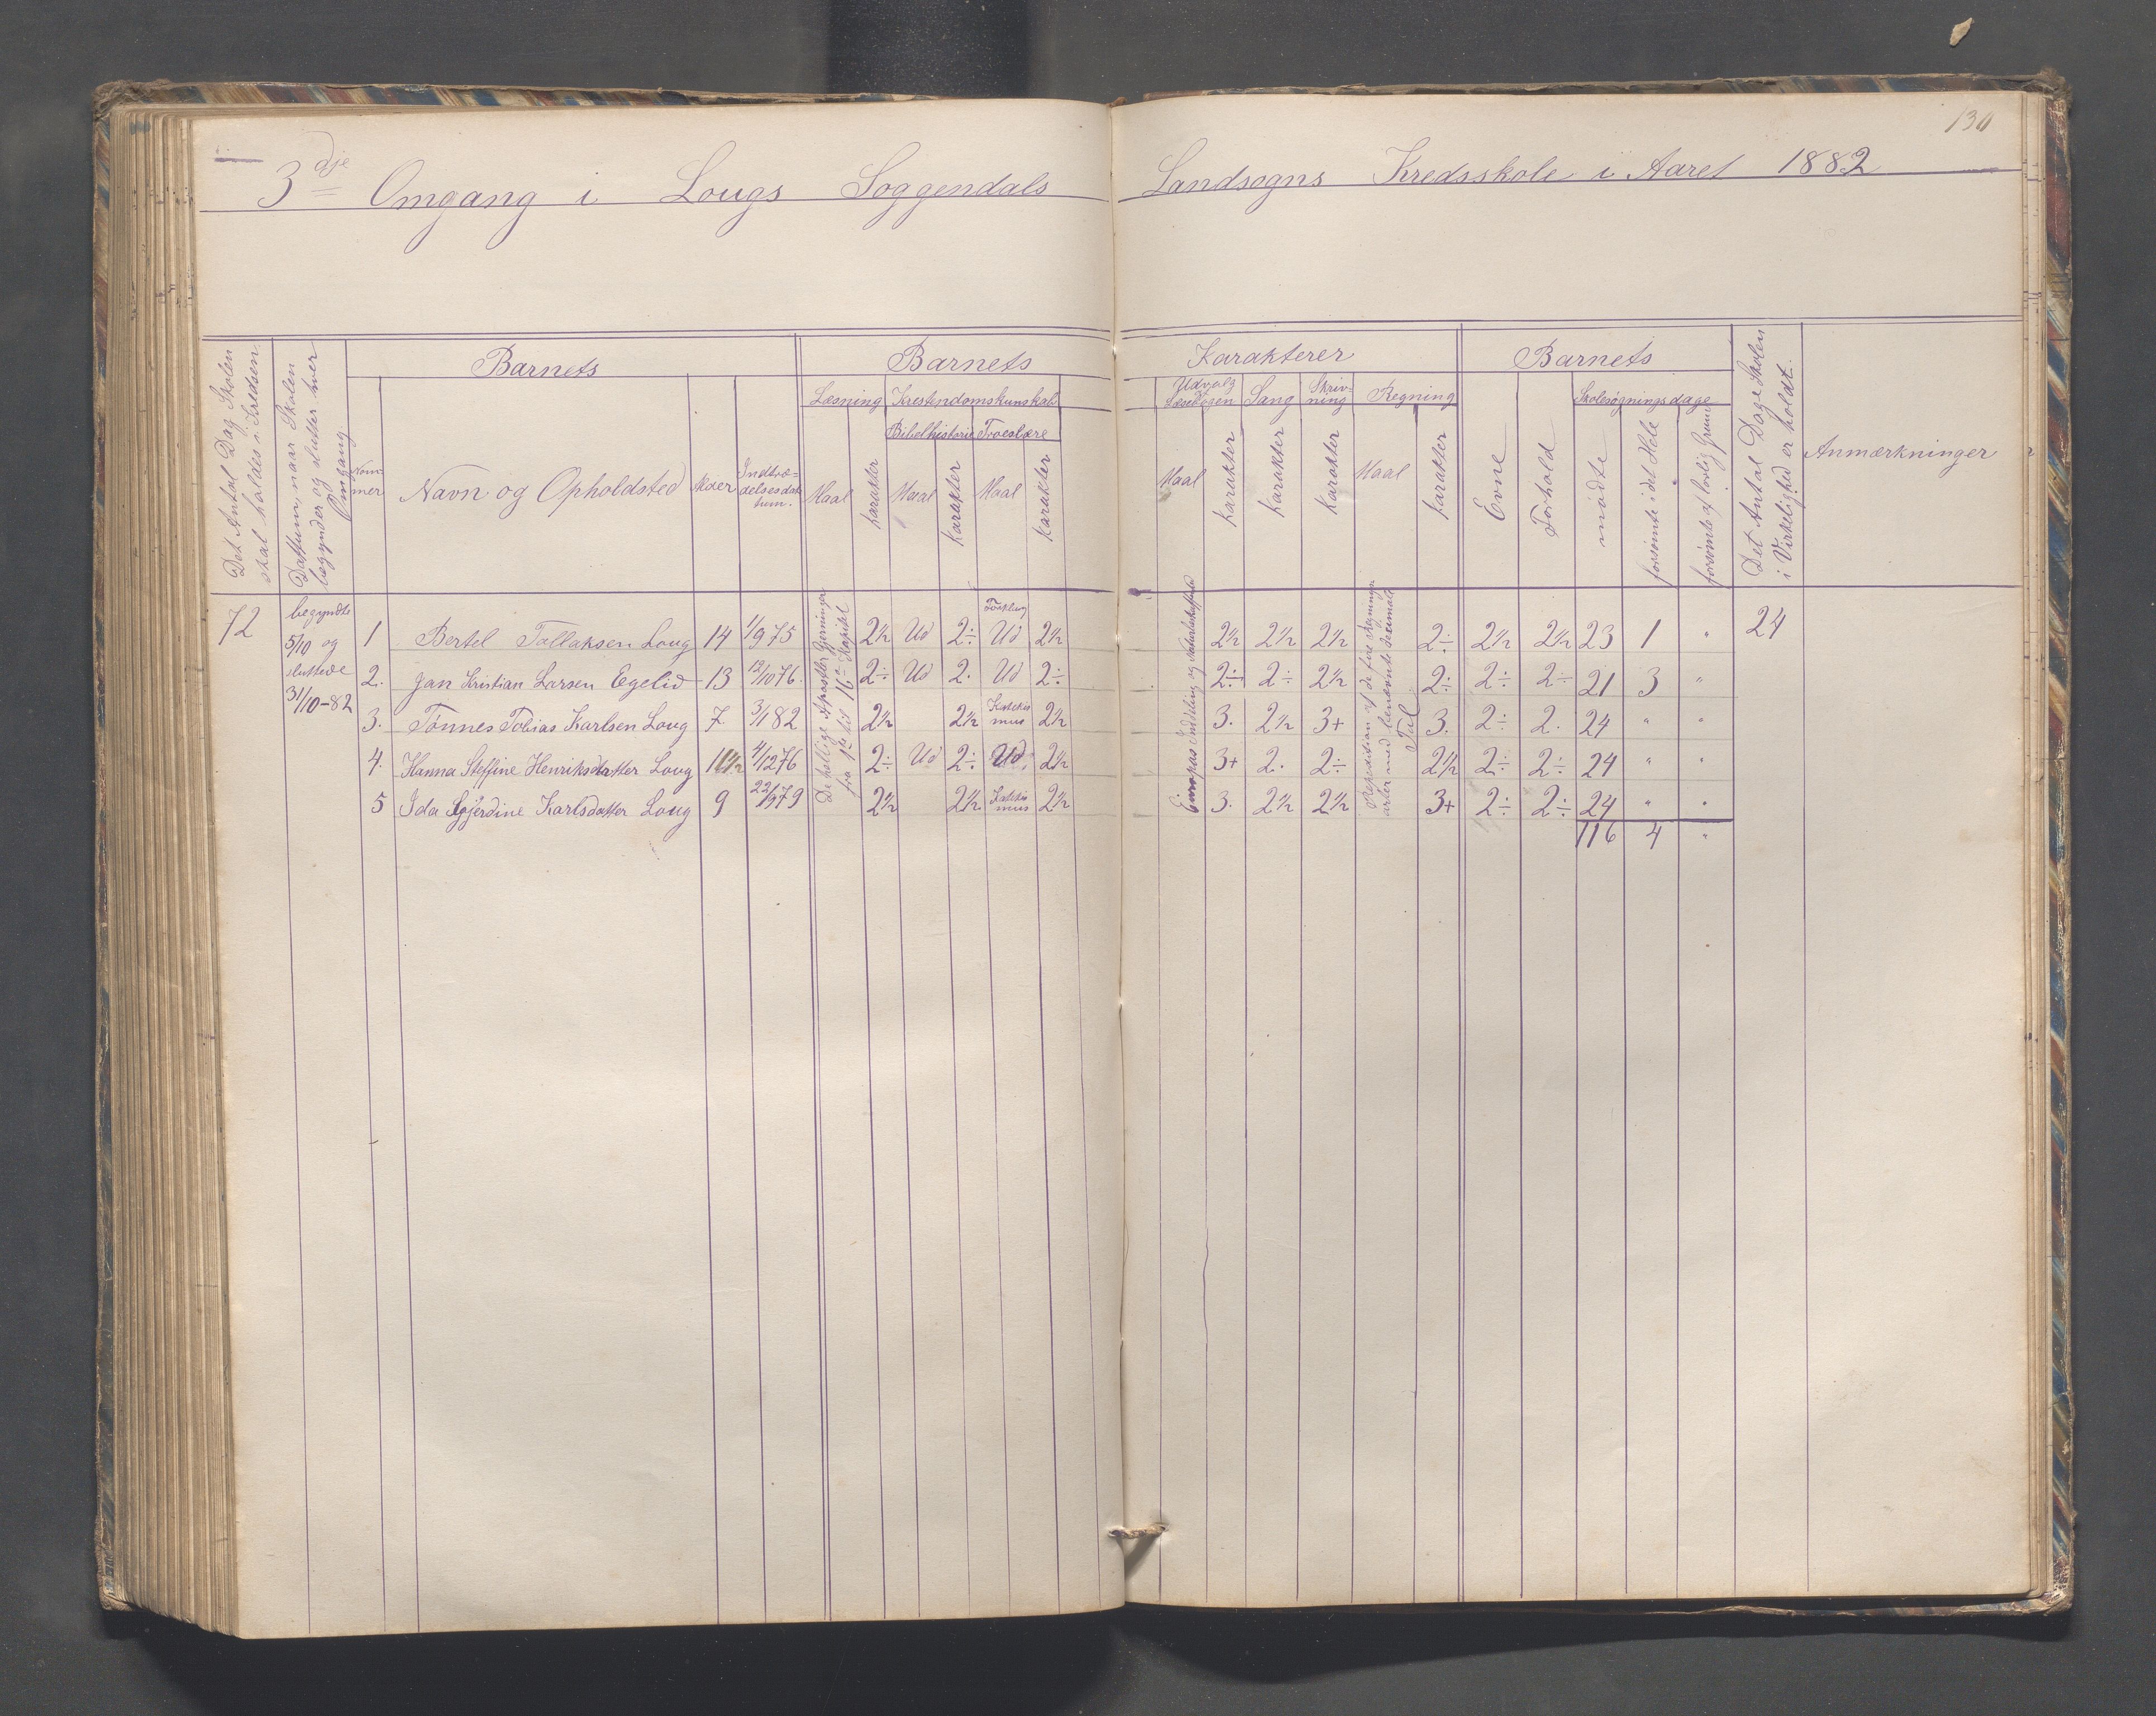 130
3dje Omgang i Lougs Soggendals Landsogns Kredsskole i Aaret 1882
Det Antal Dag Skolen skal holdes i Kredsen
Dattum, naar Skolen begynder og slutter hver Omgang
Barnets
Nommer
Navn og Opholdsted
Alder
Indtrædelsesdattum.
Barnets Karakterer
Læsning
Maal
Karakter
Kristendomskunskab
Bibelhistorie
Maal
Karakter
Troeslære
Maal
Karakter
Udvalg Læsebogen
Maal
Karakter
Sang
Karakter
Skrivning
Karakter
Regning
Maal
Karakter
Barnets
Evne
Forhold
Skolesøgningsdage
mødte
forsømte i det Hele
forsømte af lovlig Grund
Det Antal Dage Skolen i Virkelighed er holdt.
Anmærkninger
72
begyndte 5/10 og sluttede 31/10-82
De hellige Apostlers Gjerninger fra 1te til 16de Kapitel
Europas Inddeling og
Repedisian af de fire Regningsarter med benævnte Tal
1 Bertel Tollaksen Loug 14 1/9 75 2½ Ud 2÷ Forklring Ud 2½ 2½ 2½ 2½ 2÷ 2½ 2½ 23 1 " 24
2. Jan Kristian Larsen Egelid 13 12/10 76. 2÷ Ud 2. Ud 2÷ 2÷ 2÷ 2½ 2÷ 2÷ 2÷ 21 3 "
3. Tønnes Tobias Karlsen Loug 7. 3/1 82 2½ 2½ Katekismus 2½ 3. 2½ 3+ 3. 2÷ 2. 24 " "
4. Hanna Steffine Henriksdatter Loug 11½ 4/12 76 2÷ Ud 2÷ Ud 2½ 3+ 2. 2÷ 2½ 2÷ 2÷ 24 " "
5 Ida Gjerdine Karlsdatter Loug 9 22/9 79 2½ 2½ Katekismus 2½ 3. 2½ 2½ 3+ 2÷ 2÷ 24 " "
116 4 "